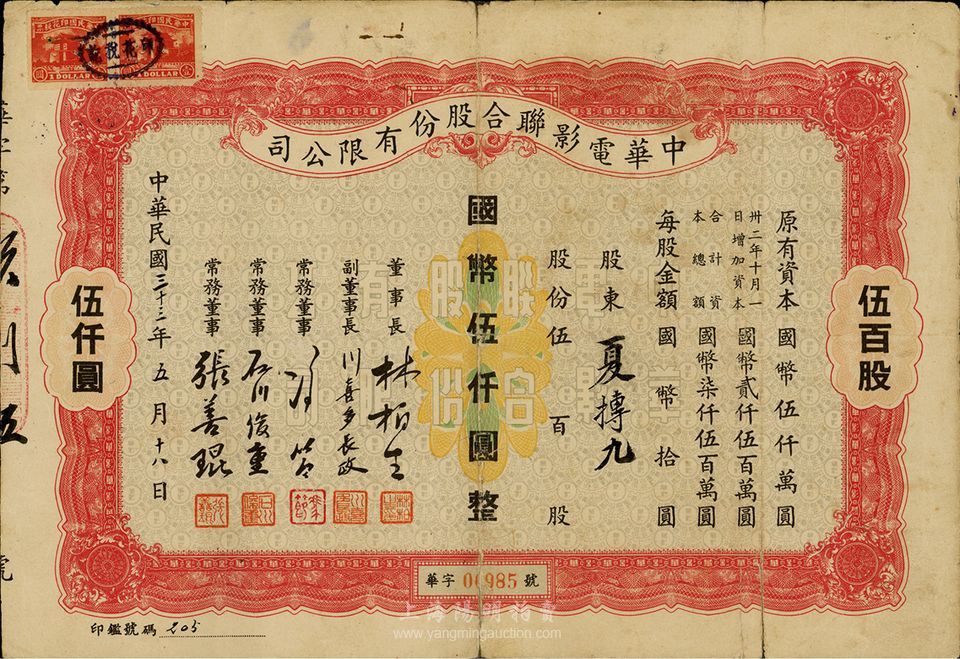 中華電影聯合股份有限公司
原有資本國幣伍仟萬圓
卅二年十月一日增加資本國幣貳仟伍百萬圓
合計資本總額國幣柒仟伍百萬圓
每股金額國幣拾圓
股東夏摶九
股份伍百股
國幣伍仟圓整
董事長林柏生
副董事長川喜多長政
常務董事馮節
常務董事石川俊重
常務董事張善琨
中華民國三十三年五月十八日
伍百股
伍仟圓
華字 00985 號
印鑑號碼 205
中華民國印花稅票
1 DOLLAR
1 DOLLAR
印花稅
上海陽明拍賣
www.yangmingauction.com